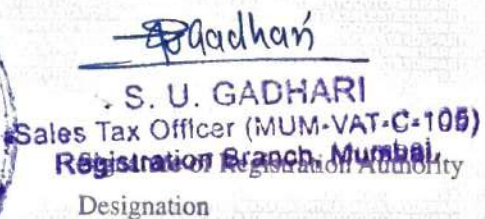 SGadhari
S. U. GADHARI
Sales Tax Officer (MUM-VAT-C-105)
Registration Branch, Mumbai,
Signature of Registration Authority
Designation